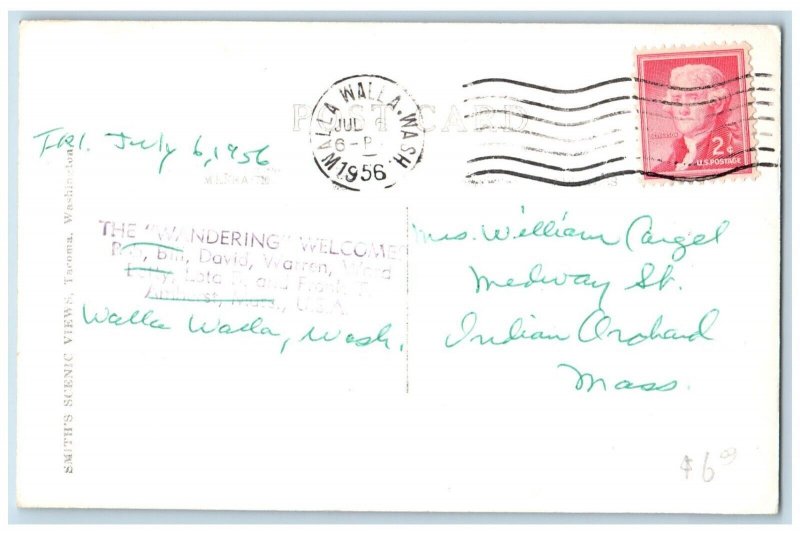 POST CARD
WALLA WALLA, WASH.
JUL 6
6-P
1956
2¢
U.S. POSTAGE
Fri. July 6, 1956
MESSAGE
THE "WANDERING" WELCOMES
Bill, David, Warren, Ward
Betty, Lota and Frank
Amherst, Mass., U.S.A.
Walla Walla, Wash.
Mrs. William Cargel
Medway St.
Indian Orchard
Mass.
SMITH'S SCENIC VIEWS, Tacoma, Washington
$6.00